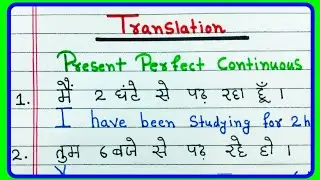 Translation
Present Perfect Continuous
1. मैं 2 घंटे से पढ़ रहा हूँ ।
I have been studying for 2h
2. तुम 6 बजे से पढ़ रहे हो ।